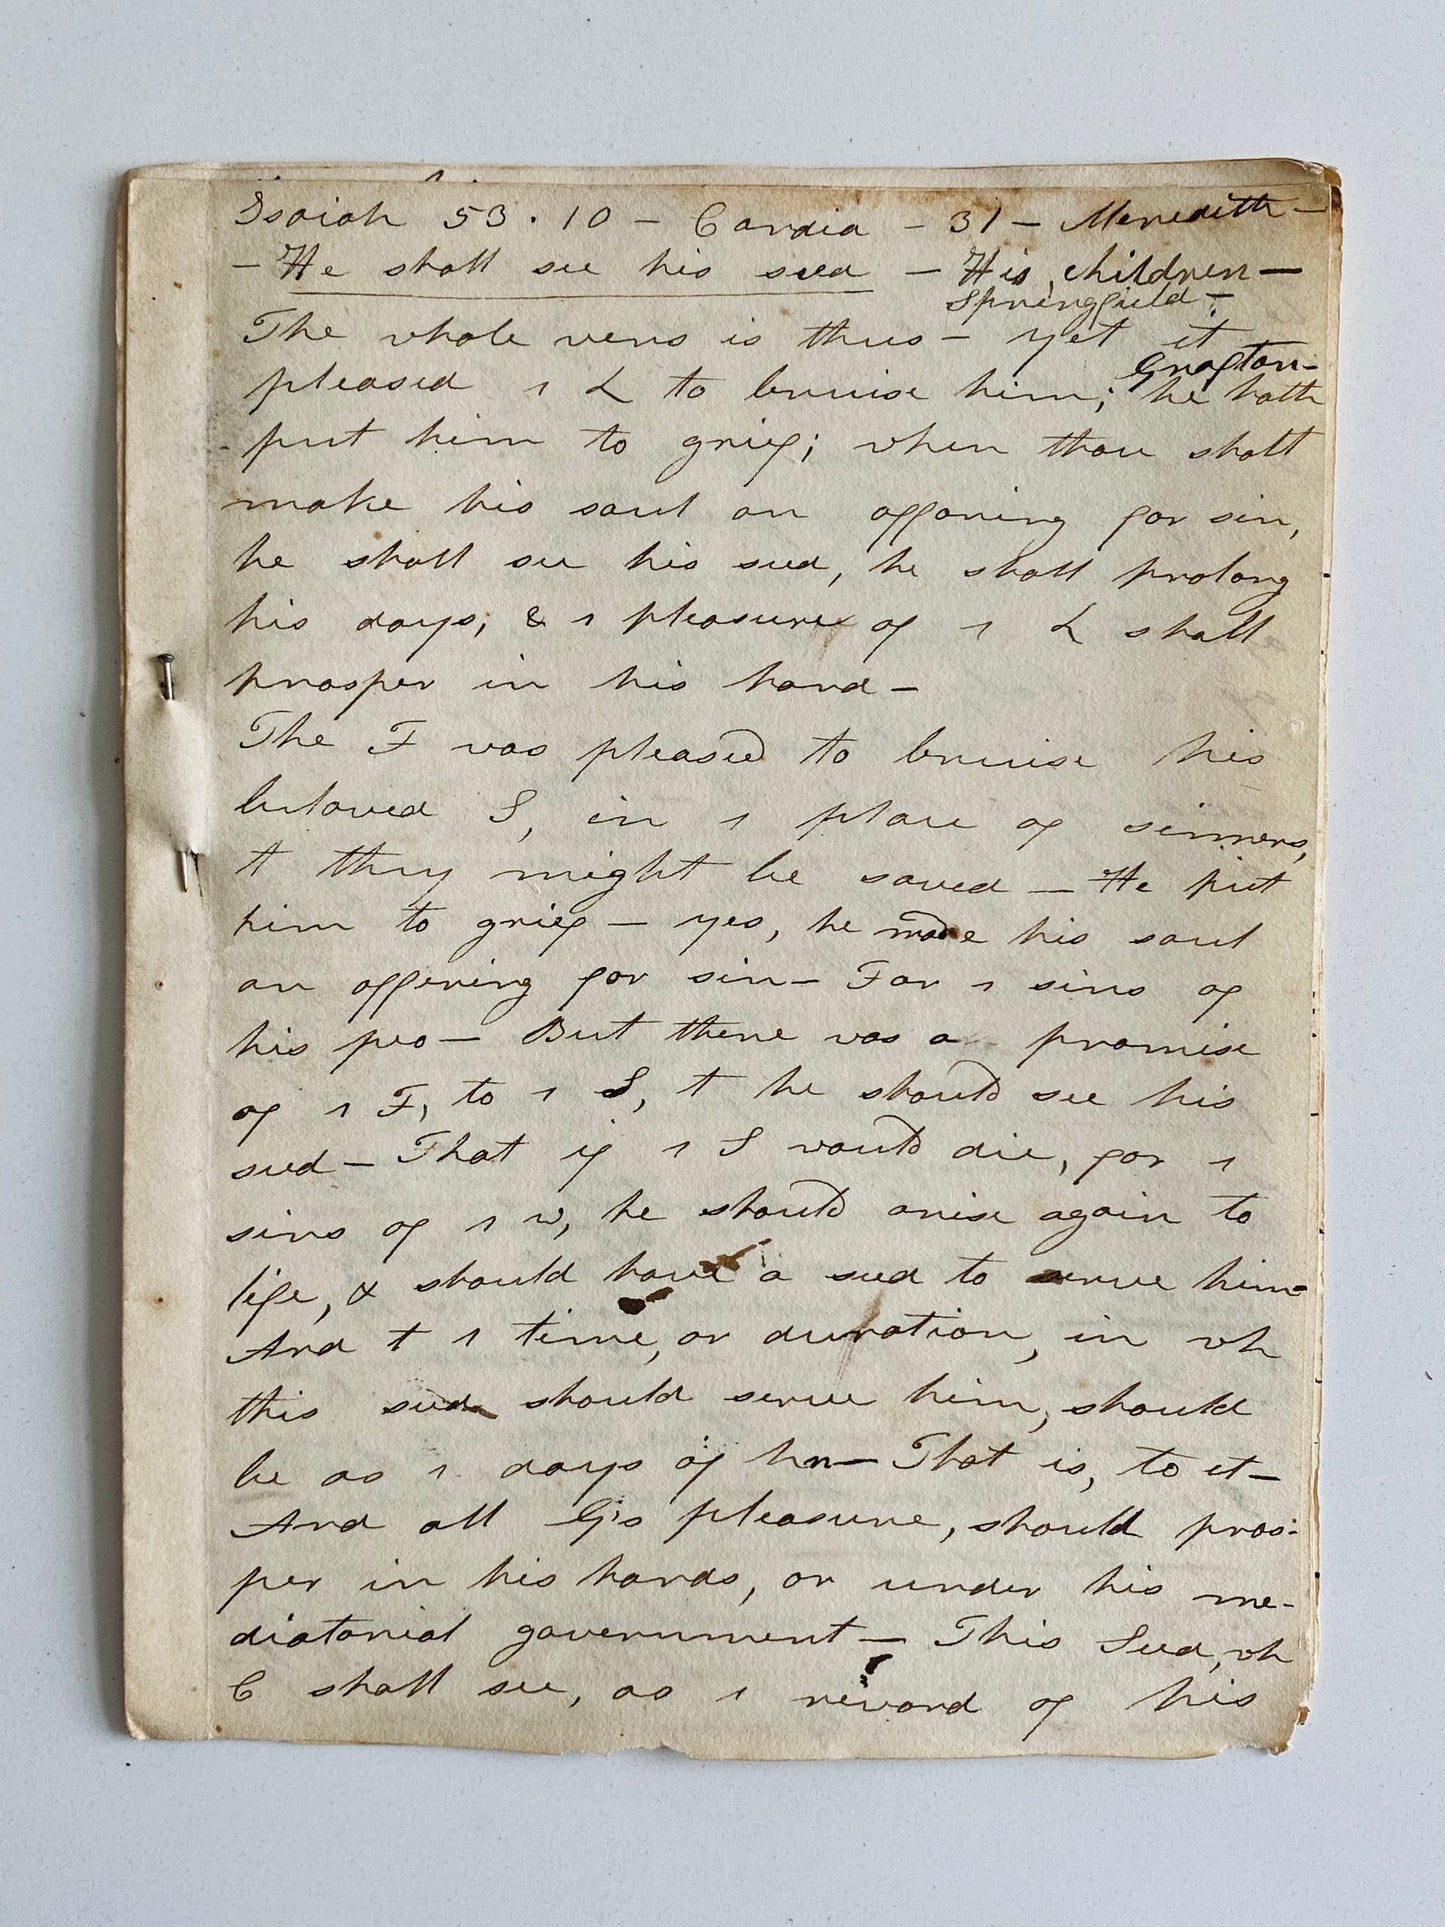 Isaiah 53. 10 – Candia – 31 – Meredith –
– He shall see his seed – His children –
Springfield –
The whole vers is thus – yet it
Grafton –
pleased 1 L to bruise him; he hath
put him to grief; when thou shalt
make his soul an offoring for sin,
he shall see his seed, he shall prolong
his days; & 1 pleasure of 1 L shall
prosper in his hand –
The F was pleased to bruise his
beloved S, in 1 place of sinners,
t they might be saved – He put
him to grief – yes, he made his soul
an offering for sin – For 1 sins of
his peo – But there was a promise
of 1 F, to 1 S, t he should see his
seed – That if 1 S would die, for 1
sins of 1 w, he should arise again to
life, & should have a seed to serve him –
And t 1 time, or duration, in wh
this seed should serve him, should
be as 1 days of hn – That is, to et –
And all G's pleasure, should pros-
per in his hands, or under his me-
diatorial government – This Seed, wh
C shall see, as 1 reward of his